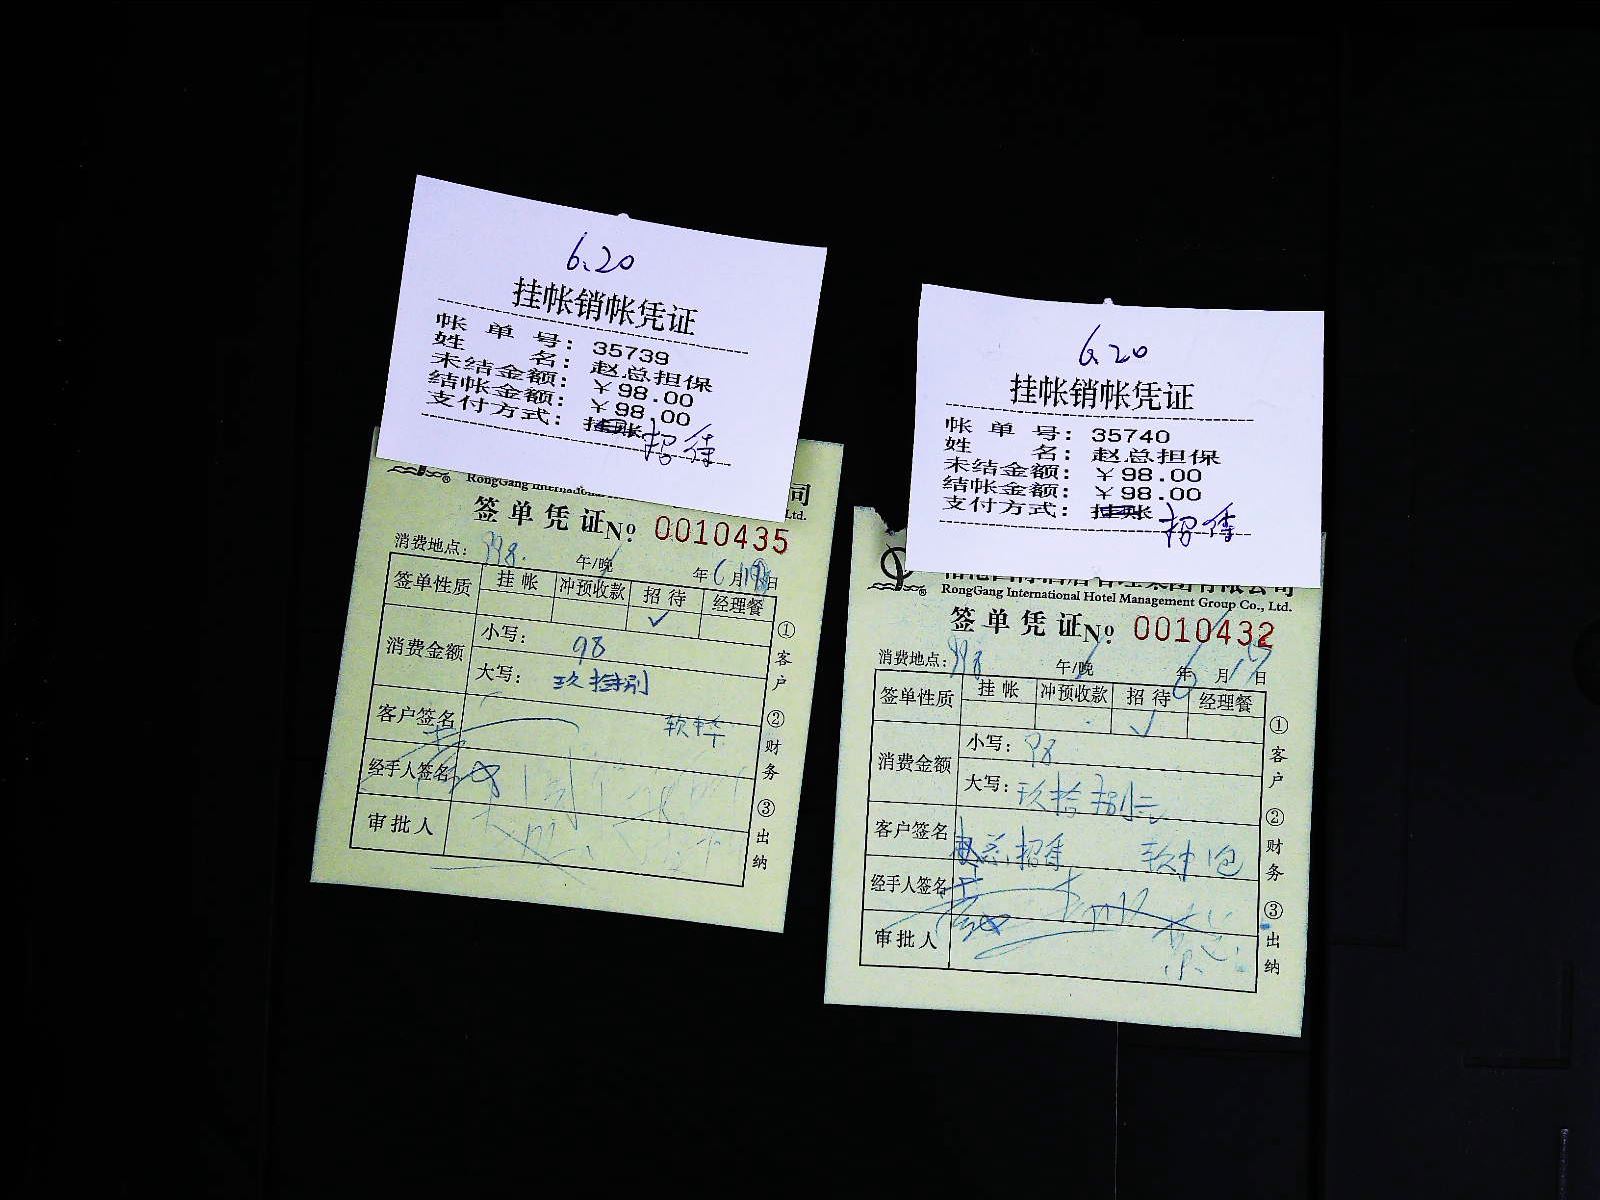 6.20
挂帐销帐凭证
帐单号：35739
姓名：赵总担保
未结金额：￥98.00
结帐金额：￥98.00
支付方式：挂账 招待
司
RongGang International Ltd.
签单凭证 No: 0010435
消费地点：998. 午/晚 年6月 日
签单性质 挂帐 冲预收款 招待 经理餐
✓
消费金额 小写：98
大写：玖拾捌
客户签名 软中华
经手人签名
审批人
①客户 ②财务 ③出纳
6.20
挂帐销帐凭证
帐单号：35740
姓名：赵总担保
未结金额：￥98.00
结帐金额：￥98.00
支付方式：挂账 招待
RongGang International Hotel Management Group Co., Ltd.
签单凭证 No: 0010432
消费地点：998 午/晚 年6月 日
签单性质 挂帐 冲预收款 招待 经理餐
✓
消费金额 小写：98
大写：玖拾捌元
客户签名 赵总招待 软中1包
经手人签名
审批人
①客户 ②财务 ③出纳